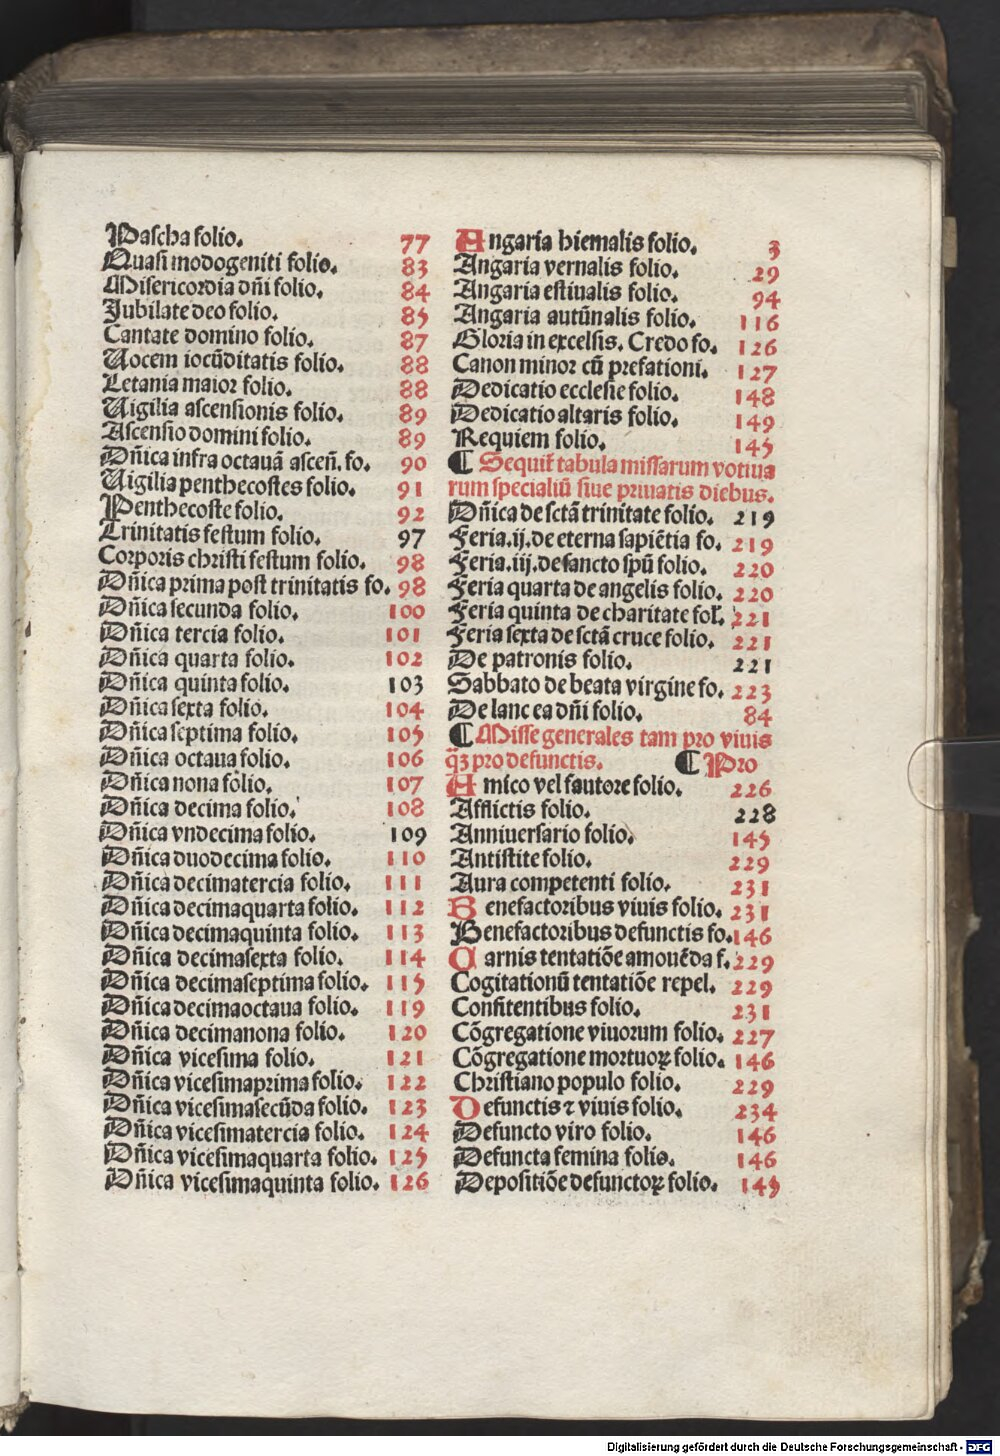 Pascha folio. 77
Quasi modogeniti folio. 83
Misericordia dñi folio. 84
Jubilate deo folio. 85
Cantate domino folio. 87
Uocem iocũditatis folio. 88
Letania maior folio. 88
Uigilia ascensionis folio. 89
Ascensio domini folio. 89
Dñica infra octauã asceñ. fo. 90
Uigilia penthecostes folio. 91
Penthecoste folio. 92
Trinitatis festum folio. 97
Corporis christi festum folio. 98
Dñica prima post trinitatis fo. 98
Dñica secunda folio. 100
Dñica tercia folio. 101
Dñica quarta folio. 102
Dñica quinta folio. 103
Dñica sexta folio. 104
Dñica septima folio. 105
Dñica octaua folio. 106
Dñica nona folio. 107
Dñica decima folio. 108
Dñica vndecima folio. 109
Dñica duodecima folio. 110
Dñica decimatercia folio. 111
Dñica decimaquarta folio. 112
Dñica decimaquinta folio. 113
Dñica decimasexta folio. 114
Dñica decimaseptima folio. 115
Dñica decimaoctaua folio. 119
Dñica decimanona folio. 120
Dñica vicesima folio. 121
Dñica vicesimaprima folio. 122
Dñica vicesimasecũda folio. 123
Dñica vicesimatercia folio. 124
Dñica vicesimaquarta folio. 125
Dñica vicesimaquinta folio. 126
Angaria hiemalis folio. 3
Angaria vernalis folio. 29
Angaria estiualis folio. 94
Angaria autũnalis folio. 116
Gloria in excelsis. Credo fo. 126
Canon minor cũ prefationi. 127
Dedicatio ecclesie folio. 148
Dedicatio altaris folio. 149
Requiem folio. 145
¶ Sequit᷑ tabula missarum votiua
rum specialiũ siue priuatis diebus.
Dñica de sctã trinitate folio. 219
Feria.ij.de eterna sapiẽtia fo. 219
Feria.iij.de sancto spũ folio. 220
Feria quarta de angelis folio. 220
Feria quinta de charitate fol. 221
Feria sexta de sctã cruce folio. 221
De patronis folio. 221
Sabbato de beata virgine fo. 223
De lanc ea dñi folio. 84
¶ Misse generales tam pro viuis
q̃ꝫ pro defunctis. ¶ Pro
Amico vel fautore folio. 226
Afflictis folio. 228
Anniuersario folio. 145
Antistite folio. 229
Aura competenti folio. 231
Benefactoribus viuis folio. 231
Benefactoribus defunctis fo. 146
Carnis tentatiõe amouẽda f. 229
Cogitationũ tentatiõe repel. 229
Confitentibus folio. 231
Cõgregatione viuorum folio. 227
Cõgregatione mortuoꝝ folio. 146
Christiano populo folio. 229
Defunctis ⁊ viuis folio. 234
Defuncto viro folio. 146
Defuncta femina folio. 146
Depositiõe defunctoꝝ folio. 145
Digitalisierung gefördert durch die Deutsche Forschungsgemeinschaft - DFG